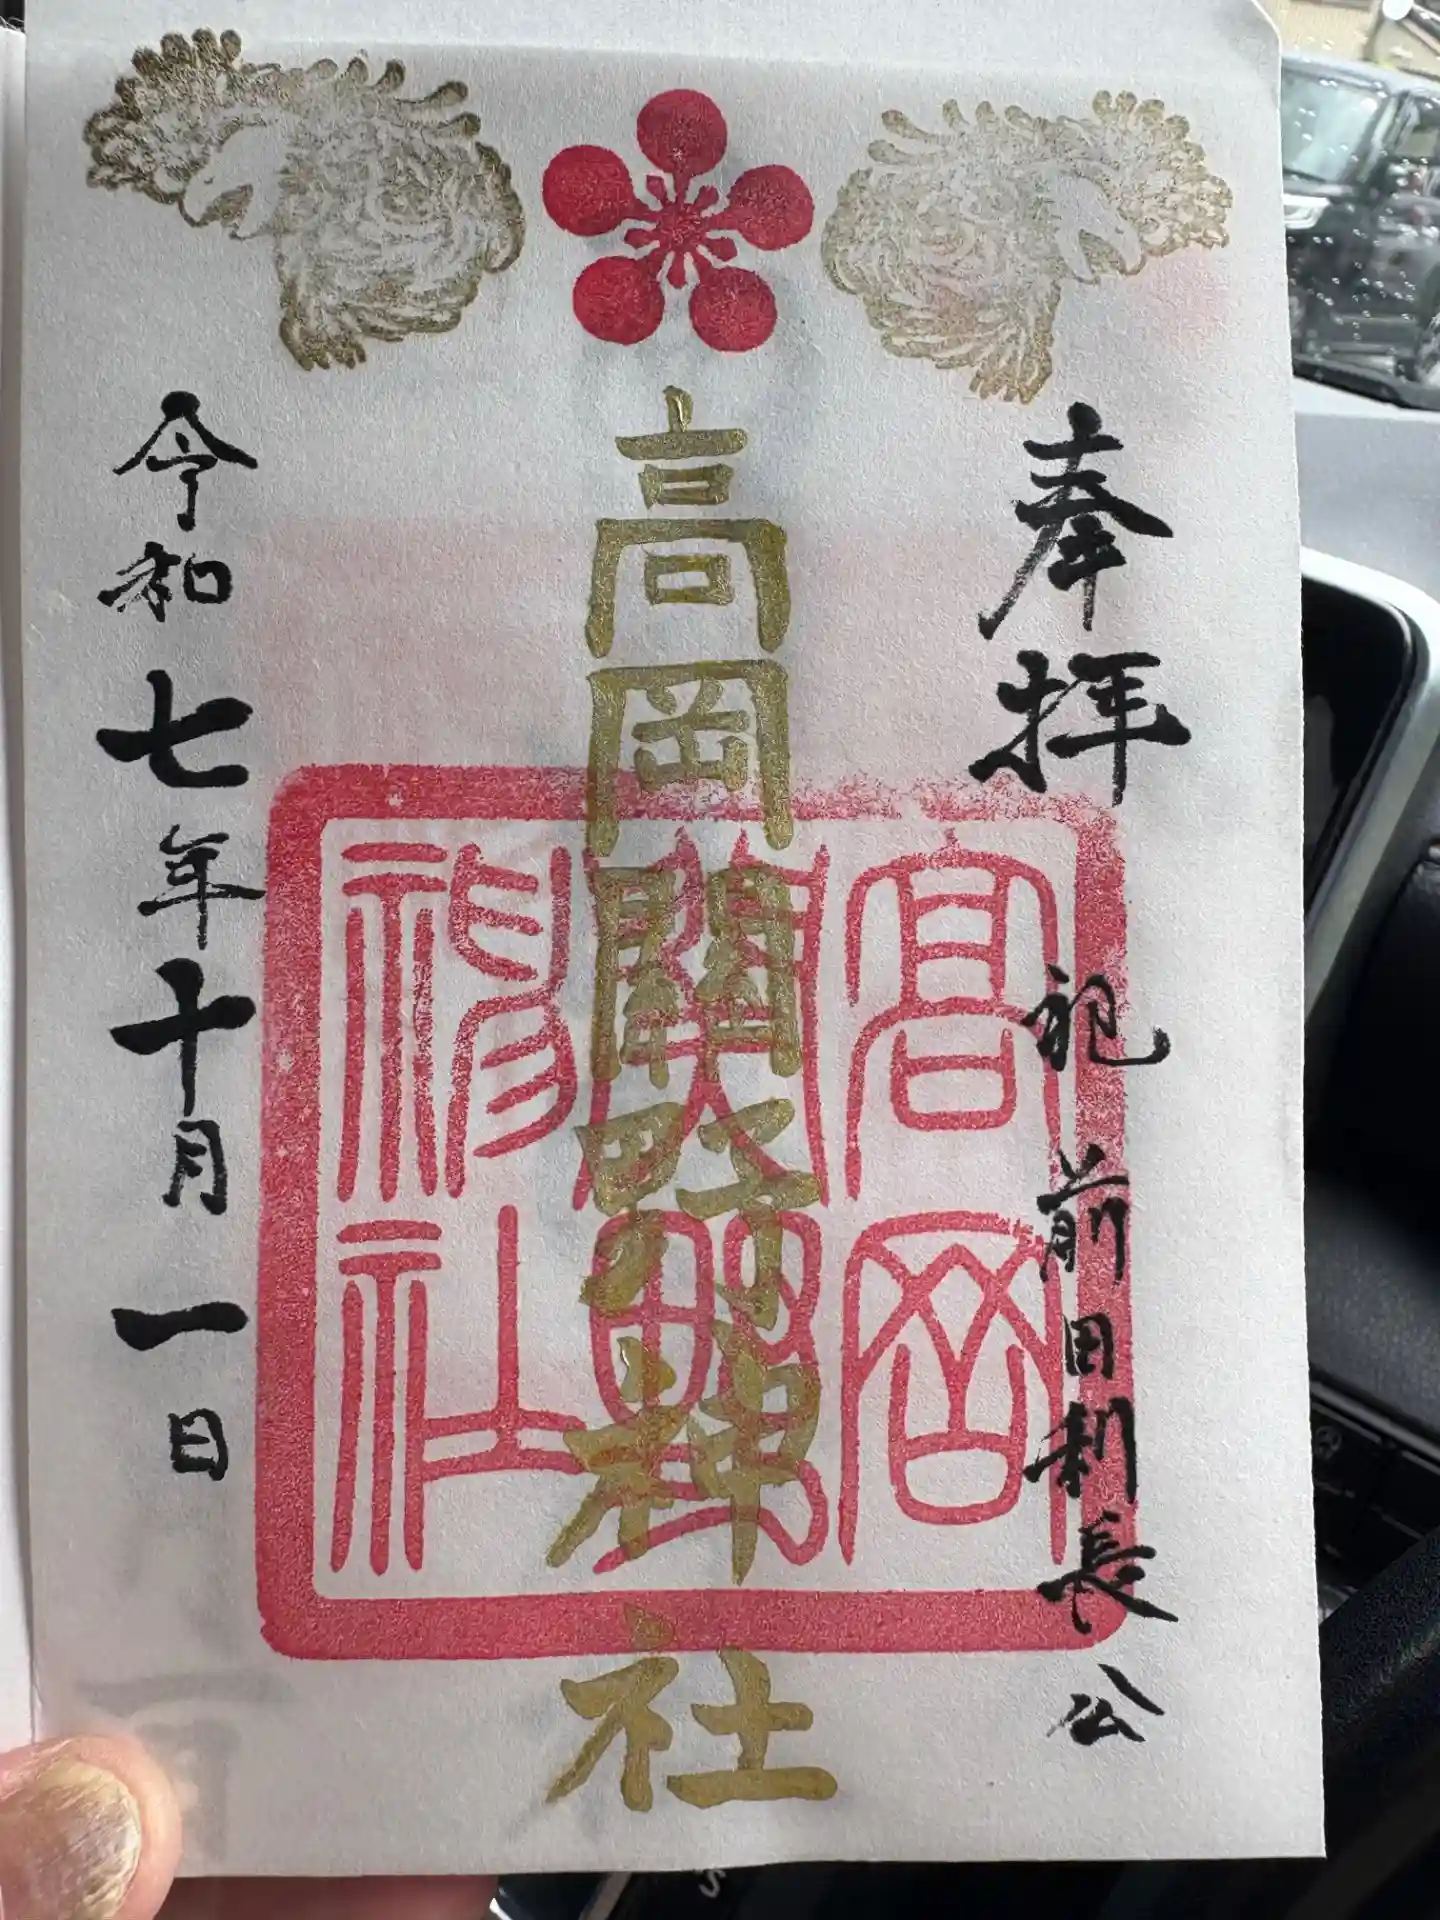 奉拝 祀 前田利長公
高岡關野神社
令和七年十月一日
高岡
関野
神社